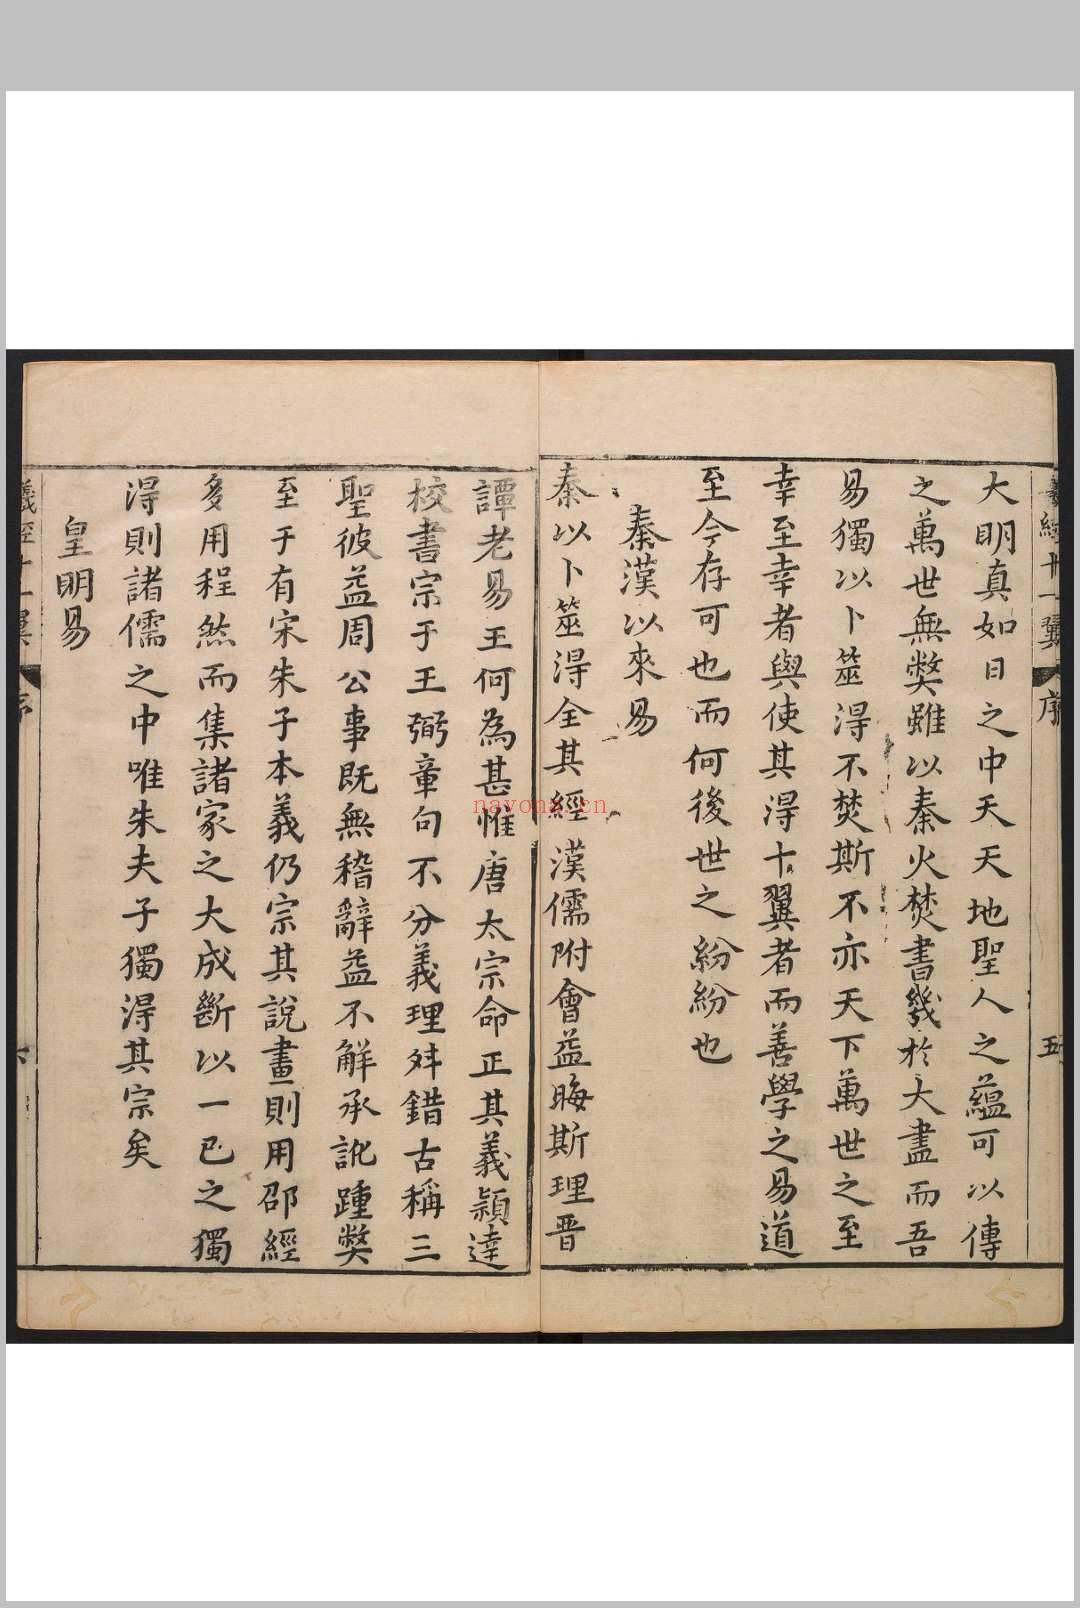 羲經十一翼 序 五
大明真如日之中天天地聖人之蘊可以傳
之萬世無獘雖以秦火焚書幾於大盡而吾
易獨以卜筮得不焚斯不亦天下萬世之至
幸至幸者與使其得十翼者而善學之易道
至今存可也而何後世之紛紛也
秦漢以來易
秦以卜筮得全其經漢儒附會益晦斯理晋
譚老易王何為甚惟唐太宗命正其義頴達
校書宗于王弼章句不分義理舛錯古稱三
聖彼益周公事既無稽辭益不解承訛踵獘
至于有宋朱子本義仍宗其說畫則用邵經
多用程然而集諸家之大成斷以一己之獨
得則諸儒之中唯朱夫子獨得其宗矣
皇明易
羲經十一翼 序 六
nayona.cn